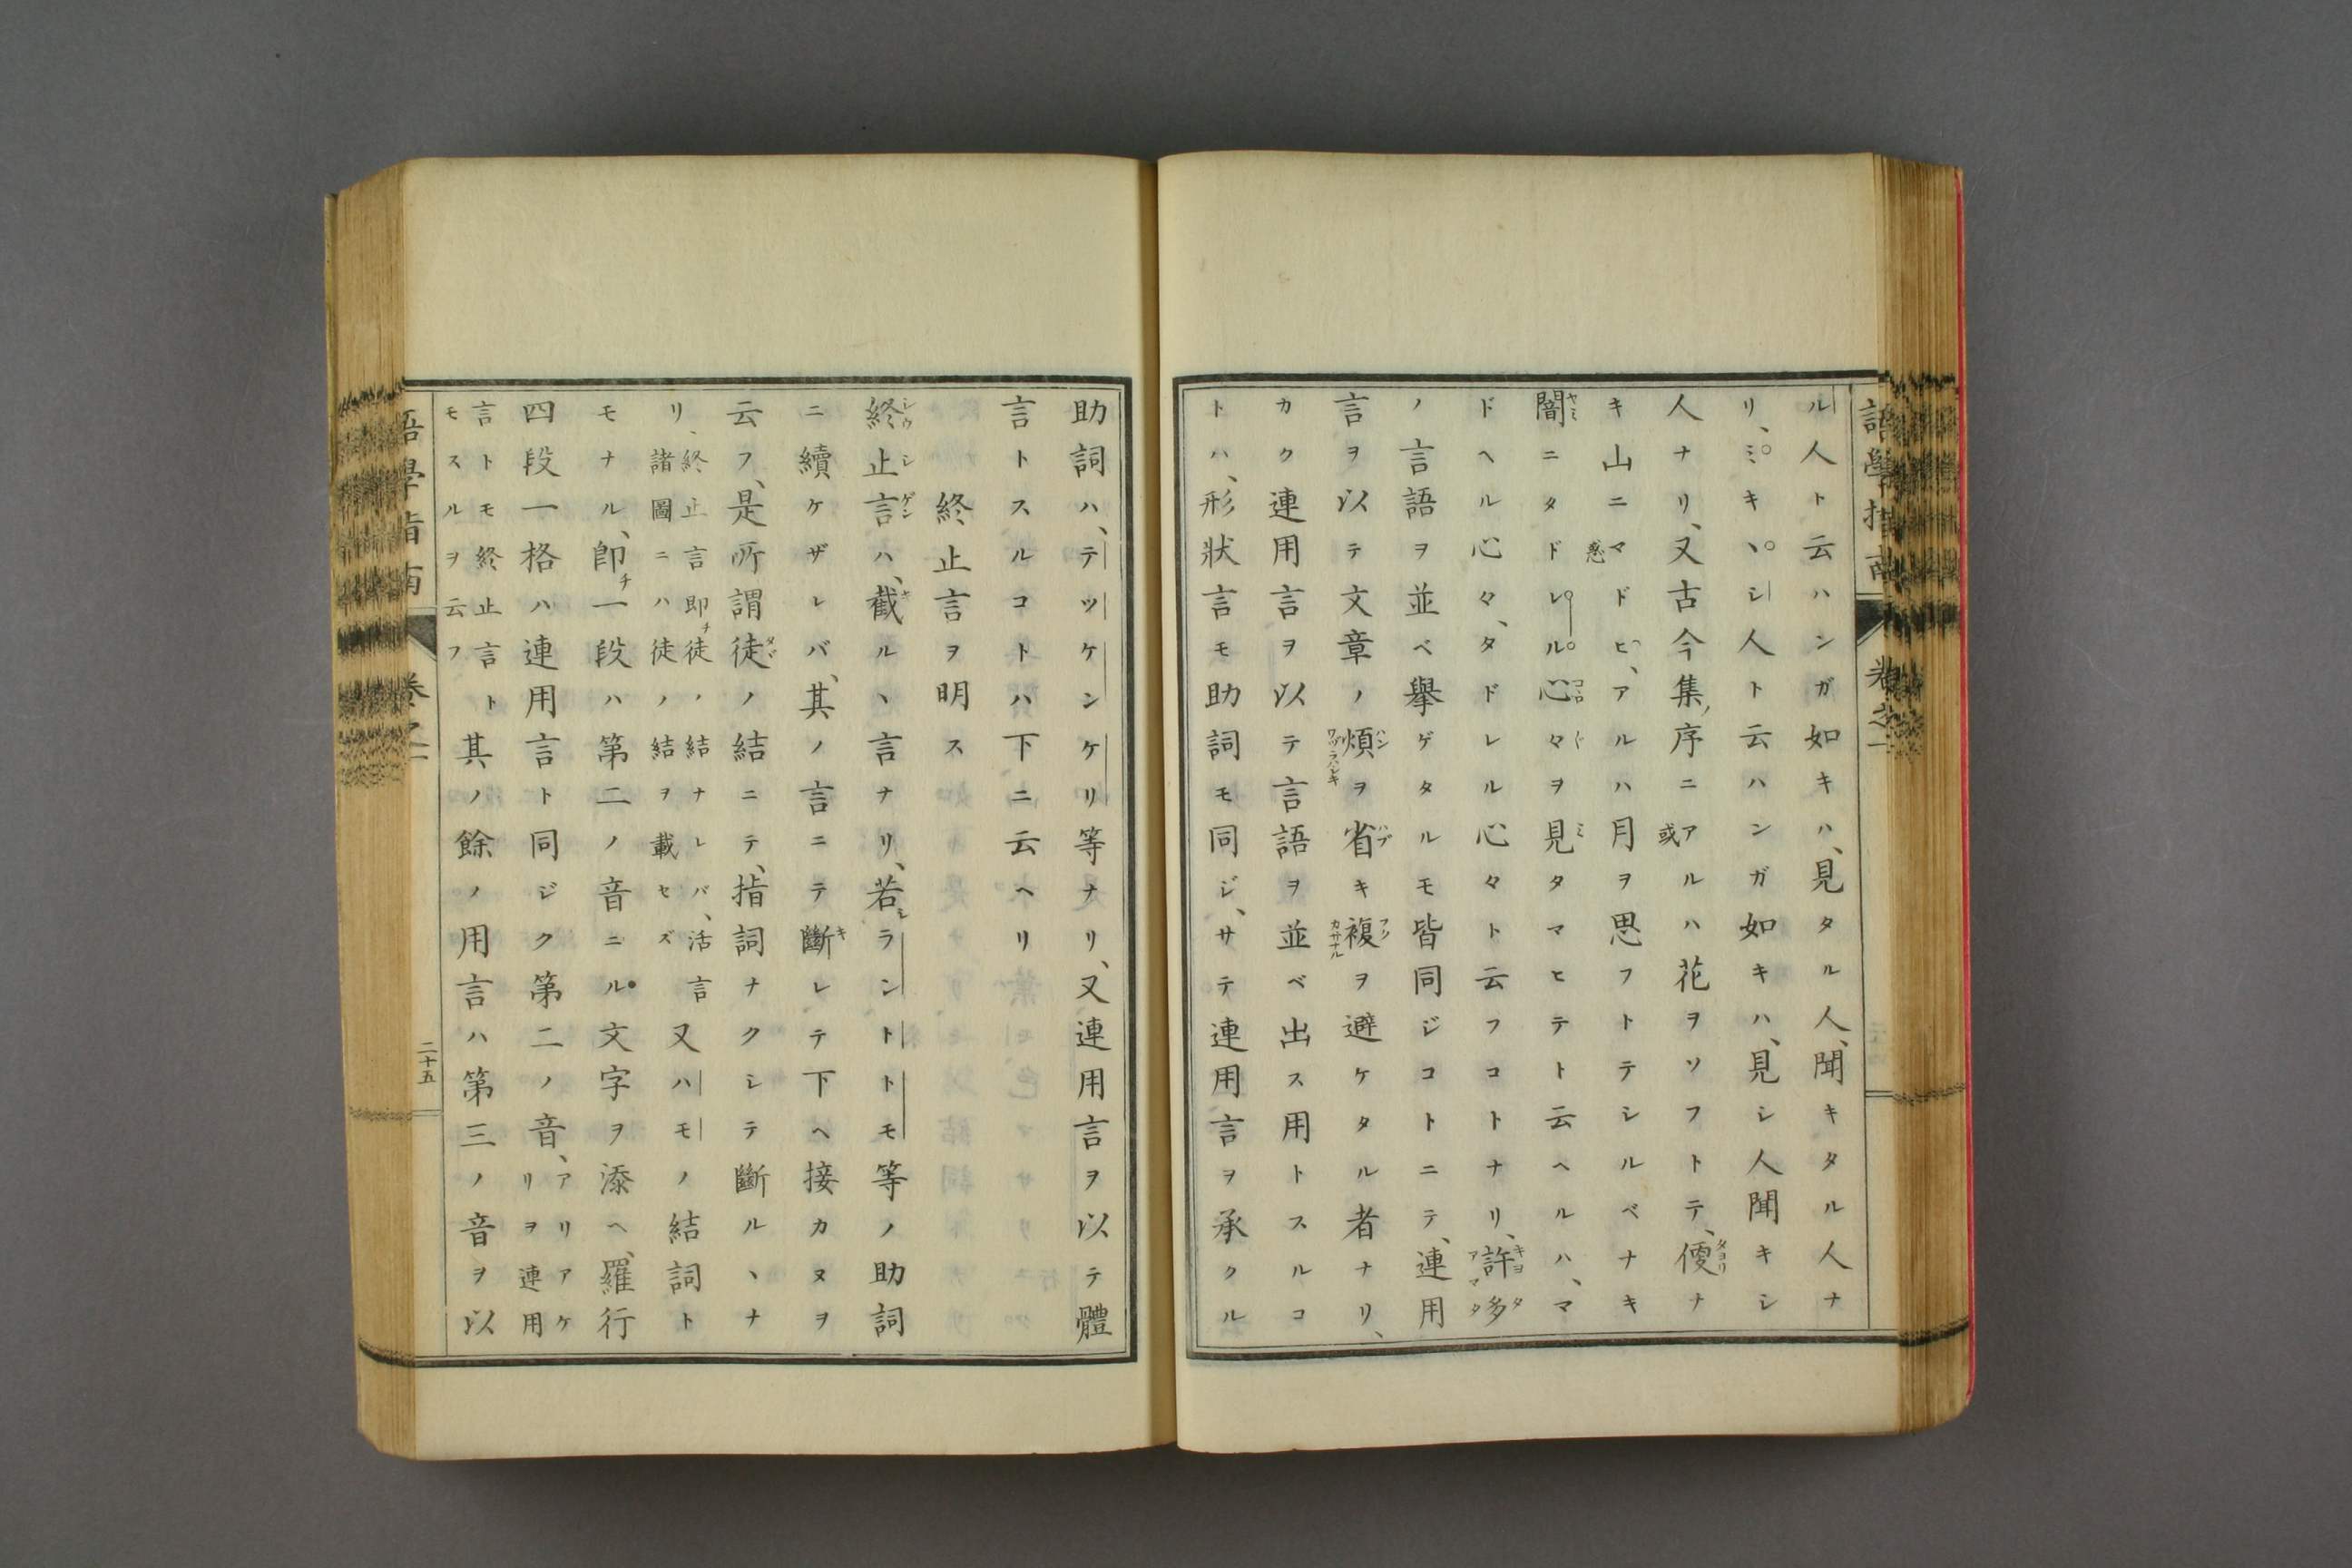 語學指南 卷之一
ル人ト云ハンガ如キハ、見タル人、聞キタル人ナ
リ、ミキヽシ人ト云ハンガ如キハ、見シ人聞キシ
人ナリ、又古今集ノ序ニアルハ花ヲソフトテ、便ナ
キ山ニマドヒ、アルハ月ヲ思フトテシルベナキ
闇ニタドレル心々ヲ見タマヒテト云ヘルハ、マ
ドヘル心々、タドレル心々ト云フコトナリ、許多
ノ言語ヲ並ベ擧ゲタルモ皆同ジコトニテ、連用
言ヲ以テ文章ノ煩ヲ省キ複ヲ避ケタル者ナリ、
カク連用言ヲ以テ言語ヲ並ベ出ス用トスルコ
トハ、形狀言モ助詞モ同ジ、サテ連用言ヲ承クル
助詞ハ、テツケンケリ等ナリ、又連用言ヲ以テ體
言トスルコトハ下ニ云ヘリ
終止言ヲ明ス
終止言ハ、截ルヽ言ナリ、若シラントトモ等ノ助詞
ニ續ケザレバ、其ノ言ニテ斷レテ下ヘ接カヌヲ
云フ、是所謂徒ノ結ニテ、指詞ナクシテ斷ルヽナ
リ、終止言即チ徒ノ結ナレバ、活言諸圖ニハ徒ノ結ヲ載セズ又ハモノ結詞ト
モナル、卽チ一段ハ第二ノ音ニル文字ヲ添ヘ、羅行
四段一格ハ連用言ト同ジク第二ノ音、アリアケリヲ連用
言トモ終止言トモスルヲ云フ其ノ餘ノ用言ハ第三ノ音ヲ以
語學指南 卷之一 二十五